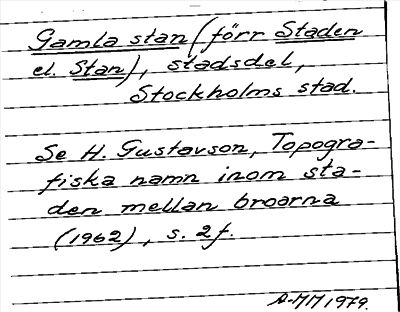 Gamla stan (förr Staden
el. Stan), stadsdel,
Stockholms stad.
Se H. Gustavson, Topogra-
fiska namn inom sta-
den mellan broarna
(1962), s. 2 f.
A-MM 1979.